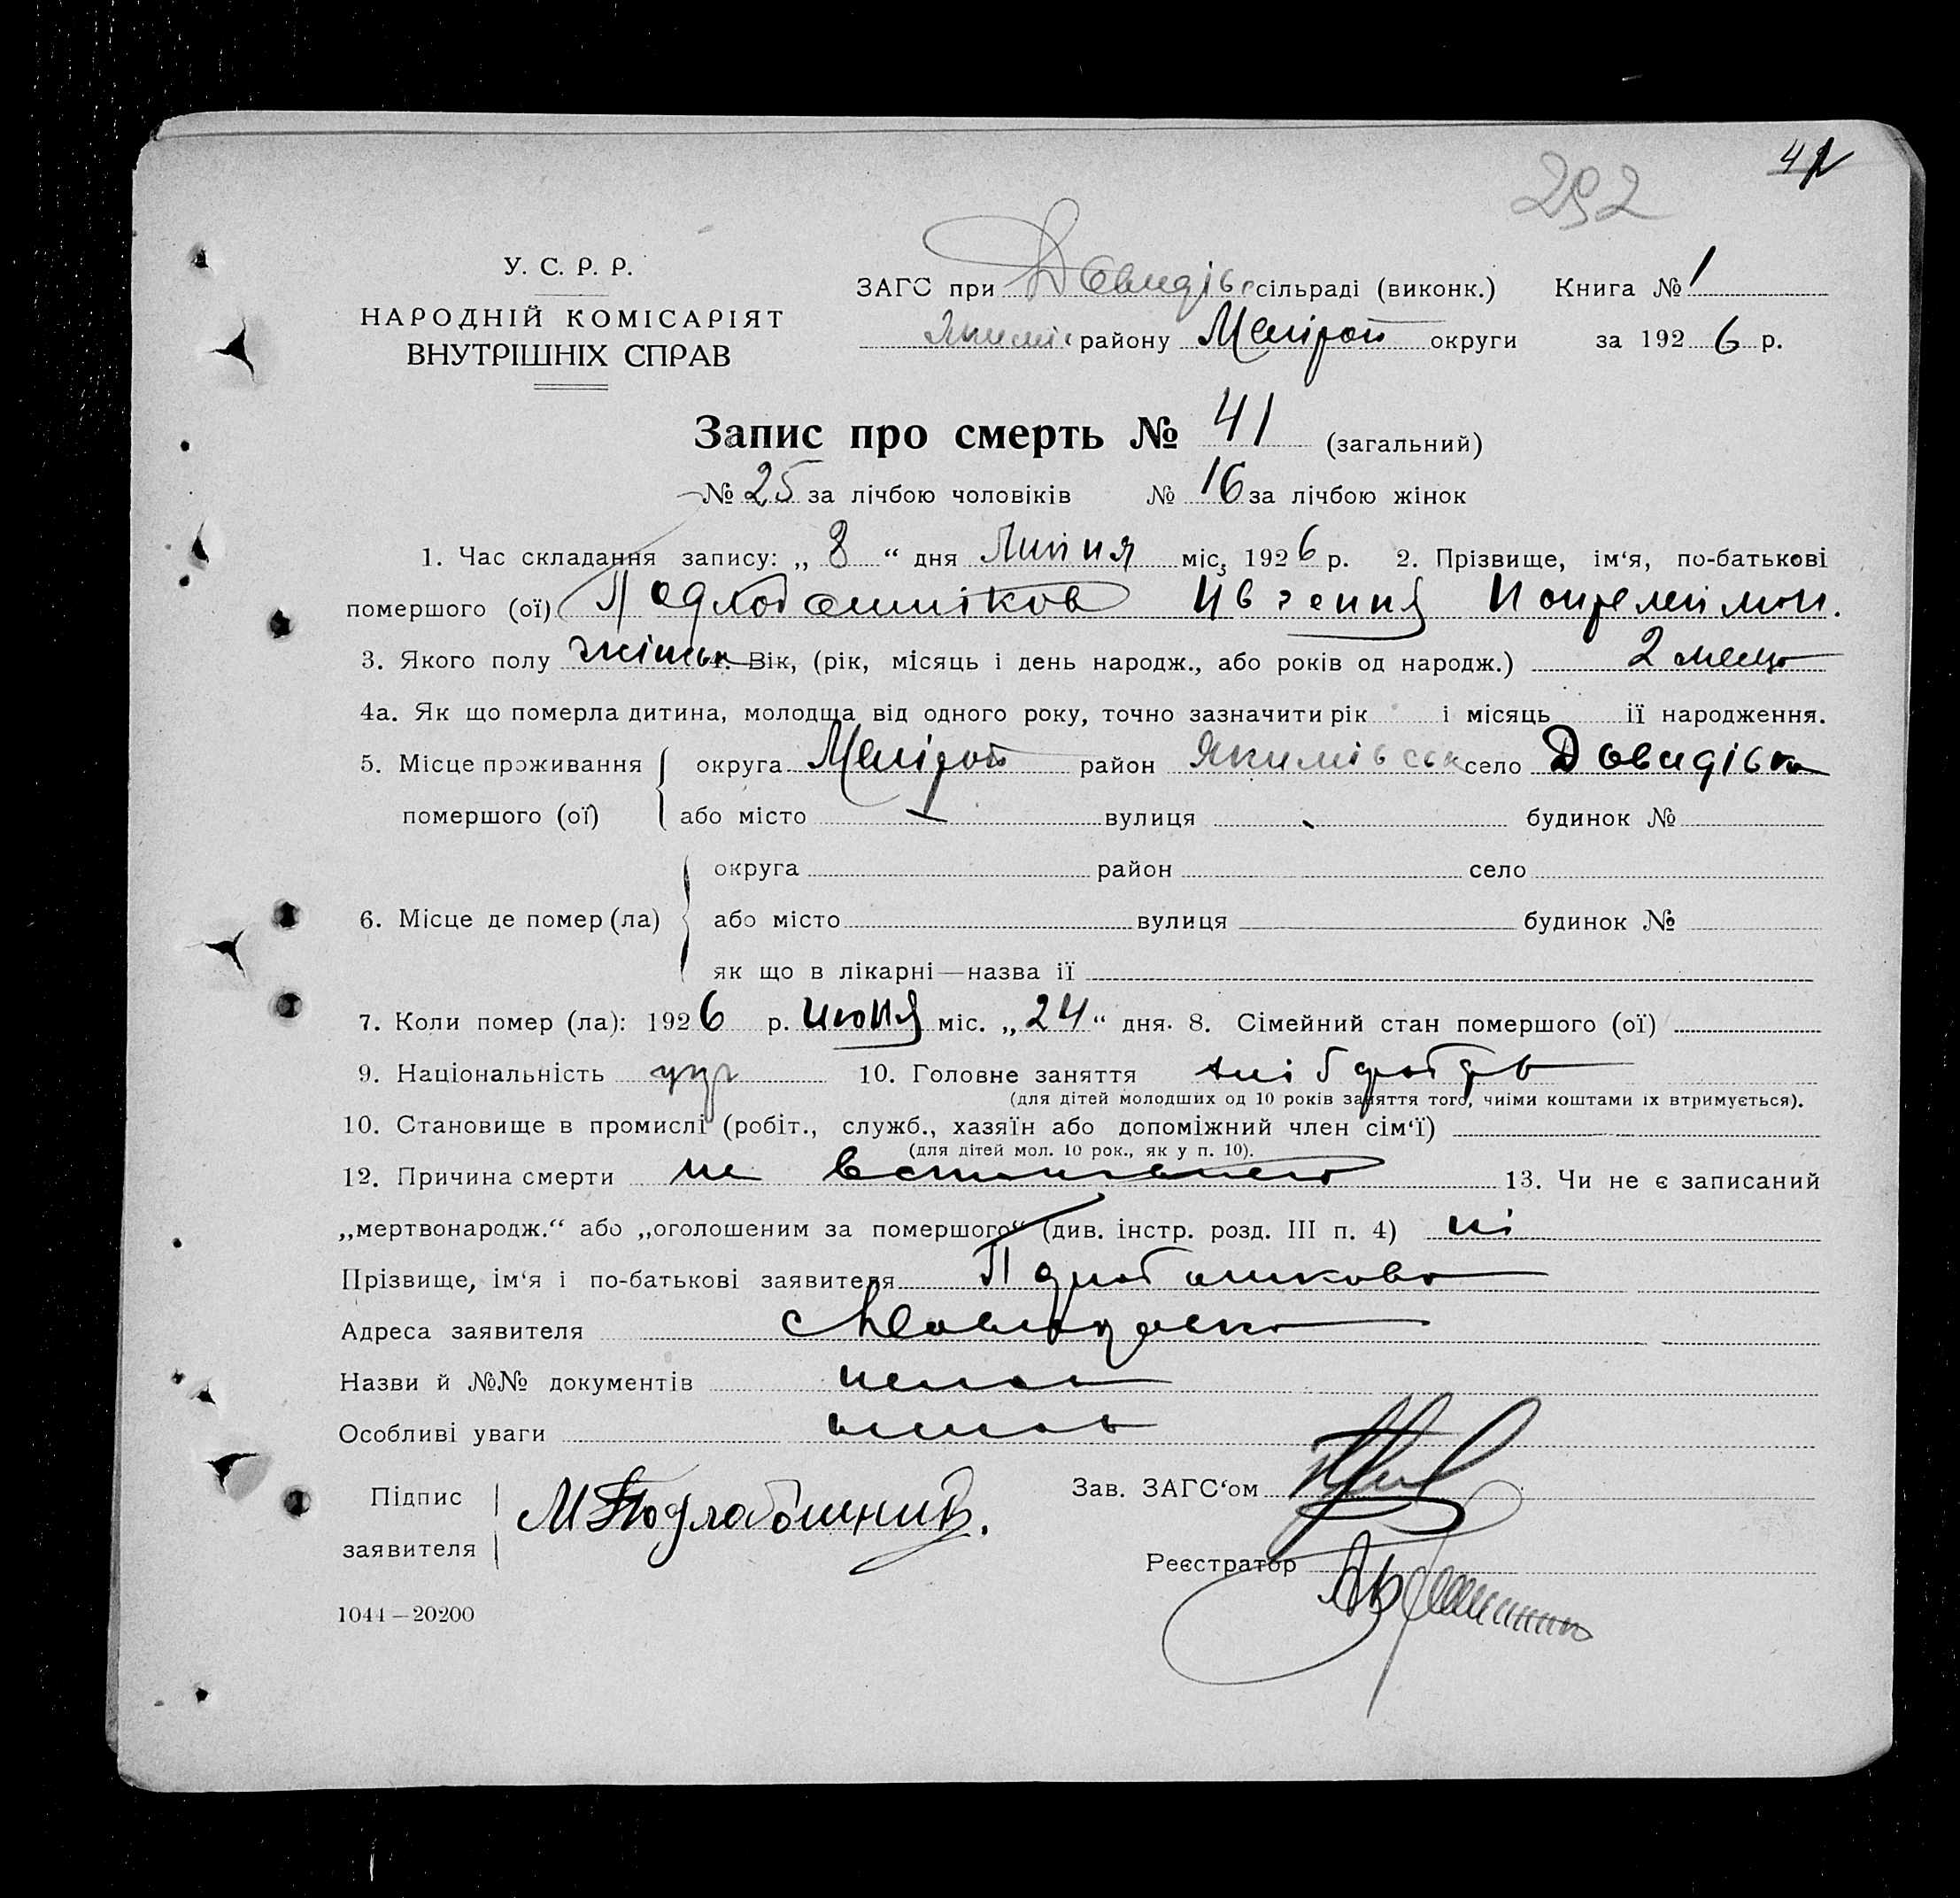 42
292
У. С. Р. Р.
НАРОДНІЙ КОМІСАРІЯТ
ВНУТРІШНІХ СПРАВ
ЗАГС при Давидів сільраді (виконк.) Книга № 1
району Меліроп округи за 1926 р.
Запис про смерть № 41 (загальний)
№ 25 за лічбою чоловіків № 16 за лічбою жінок
1. Час складання запису: „ 8 “ дня Липня міс, 1926 р. 2. Прізвище, ім‘я, по-батькові
помершого (ої)
3. Якого полу жіноч 4. Вік, (рік, місяць і день народж., або років од народж.) 2 месяц
4а. Як що померла дитина, молодща від одного року, точно зазначити рік і місяць ії народження.
5. Місце проживання округа Меліроп район Якимівськ село Давидівка
помершого (ої) або місто вулиця будинок №
округа район село
6. Місце де помер (ла) або місто вулиця будинок №
як що в лікарні—назва ії
7. Коли помер (ла): 1926 р. июня міс. „24“ дня. 8. Сімейний стан помершого (ої)
9. Національність укр 10. Головне заняття хліборобств
(для дітей молодших од 10 років заняття того, чиіми коштами іх втримується).
10. Становище в промислі (робіт., служб., хазяїн або допоміжний член сім‘ї)
(для дітей мол. 10 рок., як у п. 10).
12. Причина смерти не 13. Чи не є записаний
„мертвонародж.“ або „оголошеним за помершого“ (див. інстр. розд. III п. 4) ні
Прізвище, ім‘я і по-батькові заявителя
Адреса заявителя с Давидовка
Назви й №№ документів немає
Особливі уваги немає
Підпис Зав. ЗАГС‘ом
заявителя Реєстратор
1044—20200